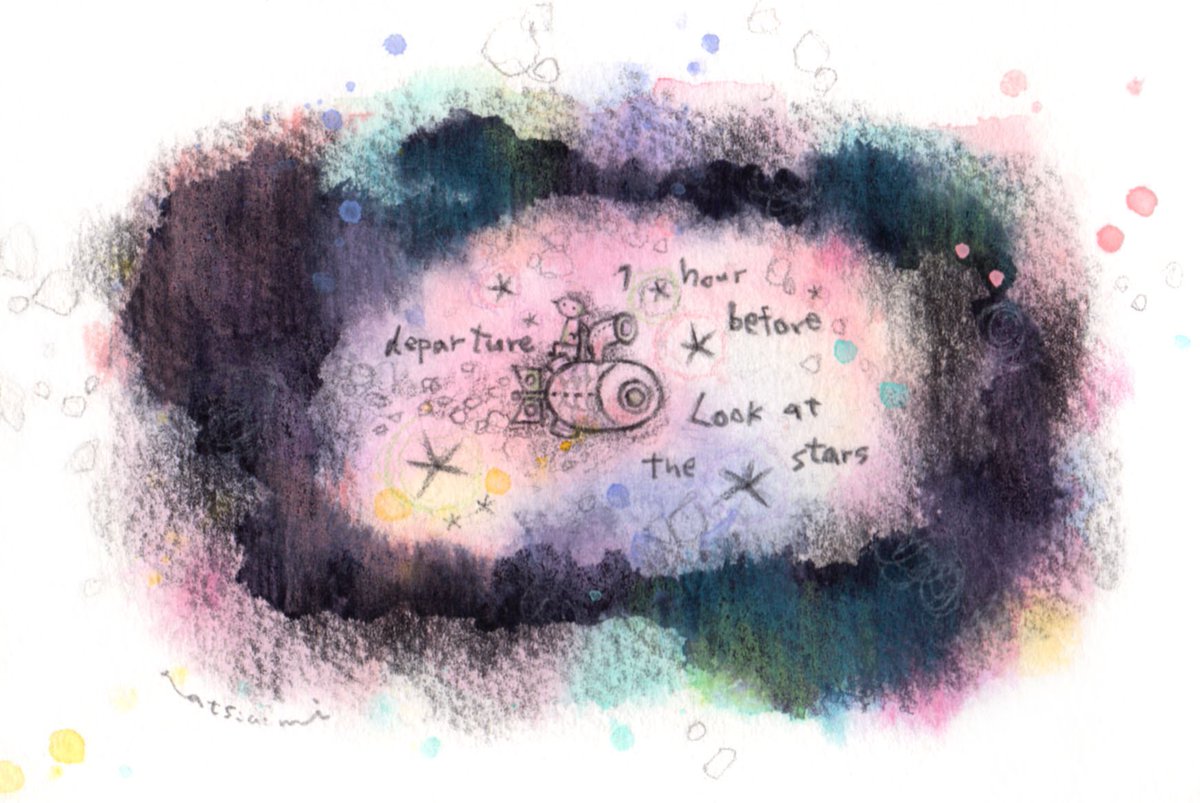 1 hour
before
departure
Look at
the stars